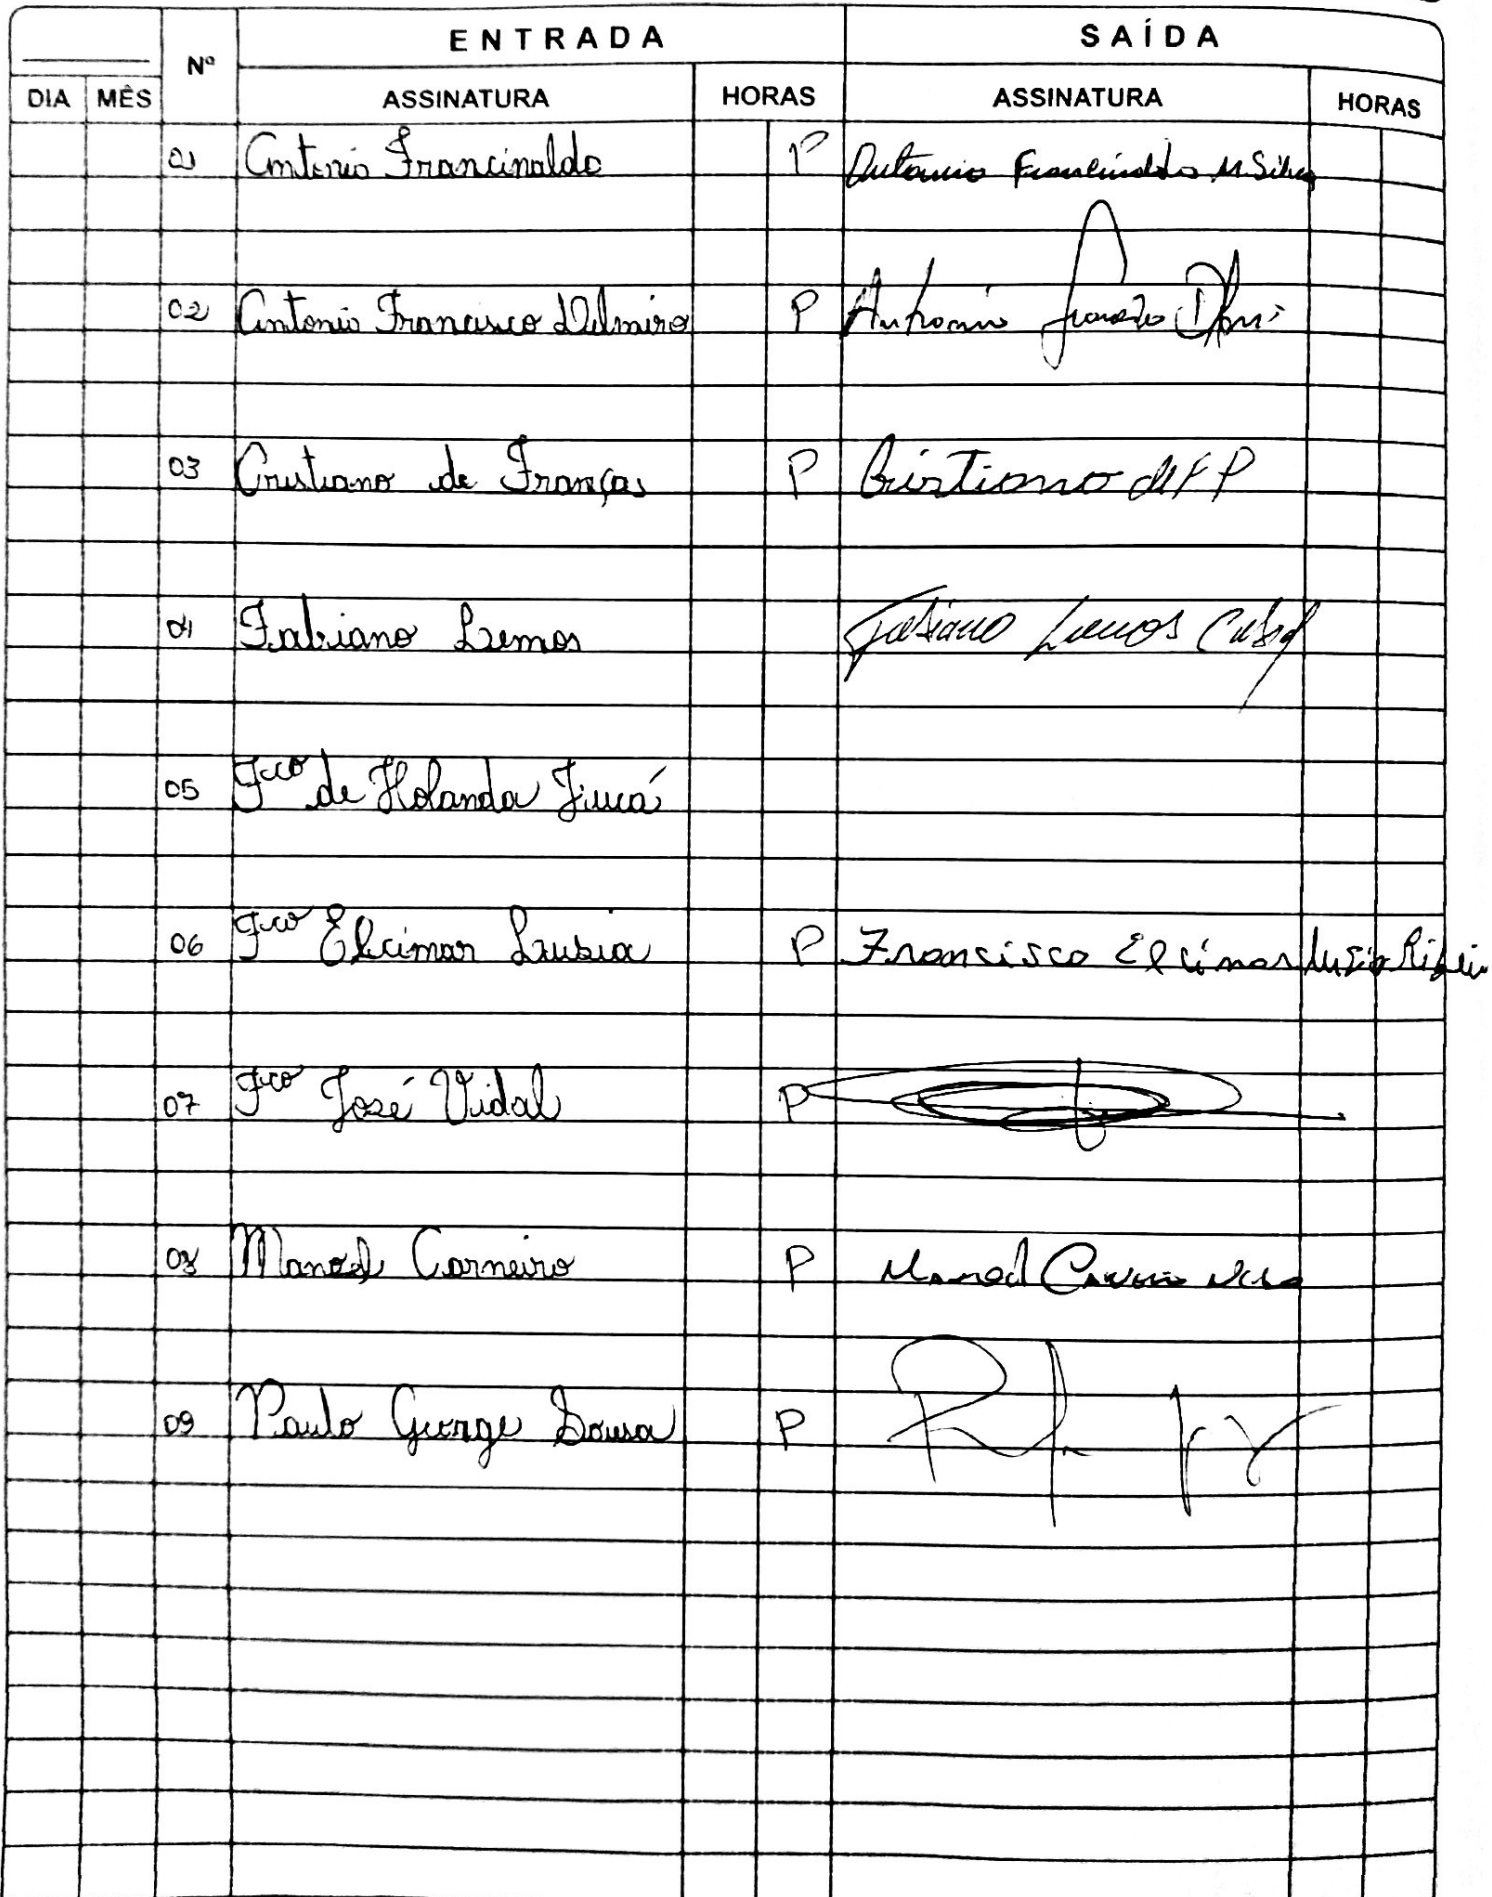 ENTRADA SAÍDA
Nº
DIA MÊS ASSINATURA HORAS ASSINATURA HORAS
01 Antonio Francinaldo P Antonio Francinaldo M. Silva
02 Antonio Francisco Delmiro P Antonio
03 Cristiano de França P Cristiano de F P
04 Fabiano Lemos Fabiano Lemos
05 Fco de Holanda Jucá
06 Fco Elcimar Lusia P Francisco Elcimar Lusia Ribeiro
07 Fco José Vidal P
08 Manoel Carneiro P Manoel
09 Paulo George Sousa P